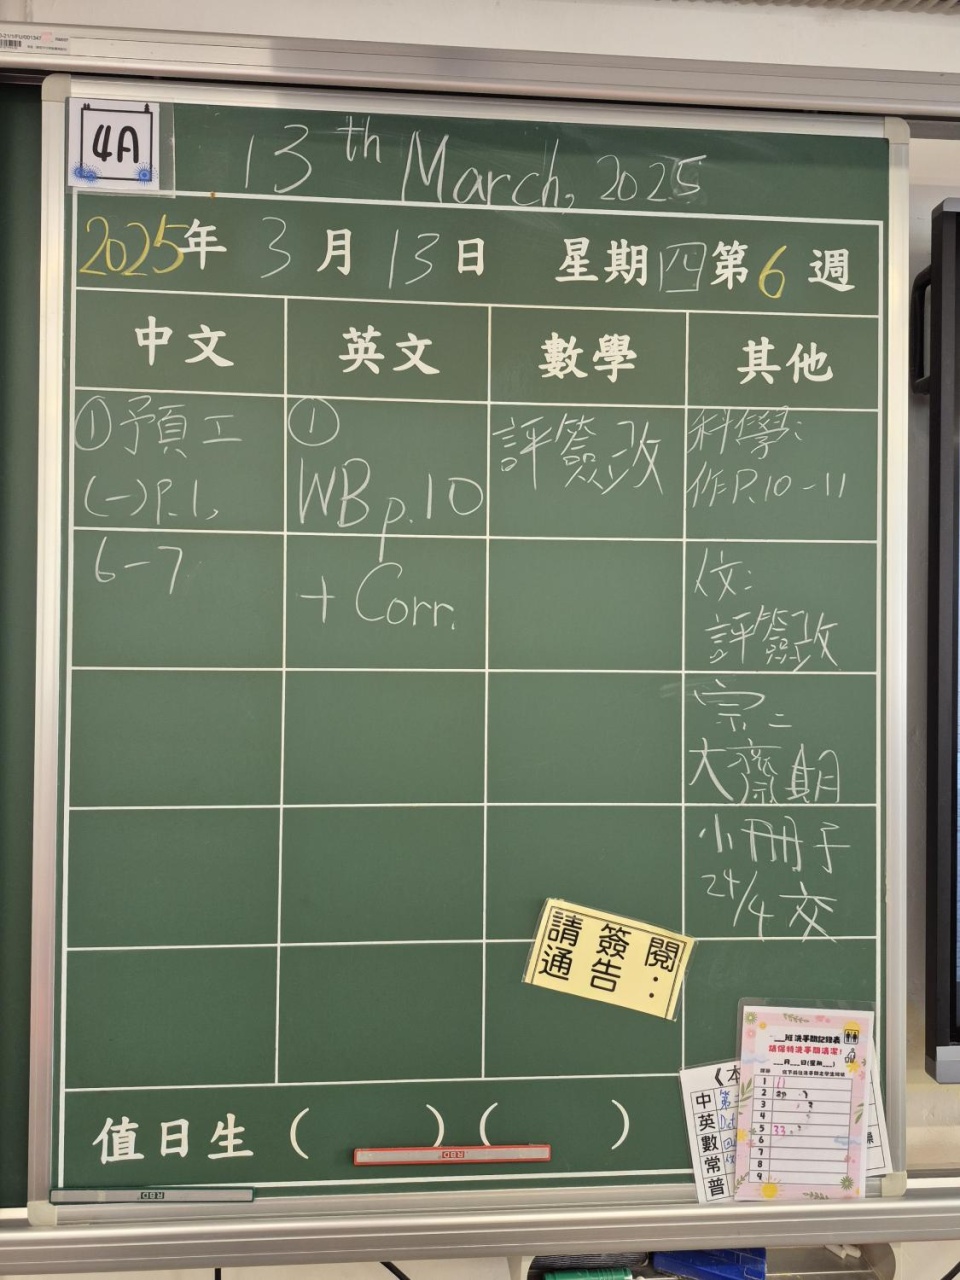 4A
13th March, 2025
2025年 3 月 13 日 星期四第 6 週
中文 英文 數學 其他
①預工
(一)P.1,
6-7
①
WB p.10
+ Corr.
評簽改
科學:
作P.10-11
伩:
評簽改
宗:
大齋期
小冊子
24/4 交
請簽閱
通告:
值日生 ( ) ( )
RBD
RBD
《本
中 第
英
數
常
普
班洗手間記錄表
請保持洗手間清潔!
月 日(星期 )
1 11
2
3
4
5 33
6
7
8
9